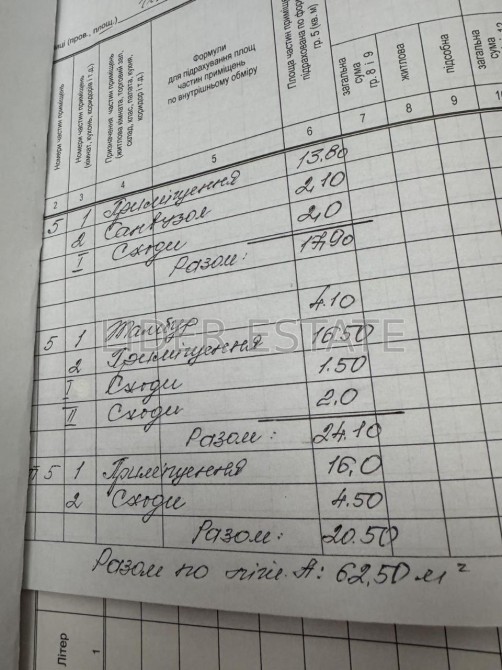 ощі (пров., площ.)
Номери частин приміщень
Номери частин приміщень (кімнат, кухонь, коридорів і т.д.)
Призначення частин приміщень (житлова кімната, торговий зал, склад, клас, палата, кухня, коридор і т.д.)
Формули
для підрахування площ
частин приміщень
по внутрішньому обміру
Площа частин приміщ
підрахована по форм
гр. 5 (кв. м)
загальна
сума
гр. 8 і 9
житлова
підсобна
загальна
сума
2 3 4 5 6 7 8 9
5 1 Приміщення 13,80
2 Санвузол 2,10
I Сходи 2,0
Разом: 17,90
5 1 Тамбур 4.10
2 Приміщення 16.50
I Сходи 1.50
II Сходи 2,0
Разом: 24.10
5 1 Приміщення 16,0
2 Сходи 4.50
Разом: 20.50
Разом по літ. А: 62,50 м²
LIDER ESTATE
Літер
1